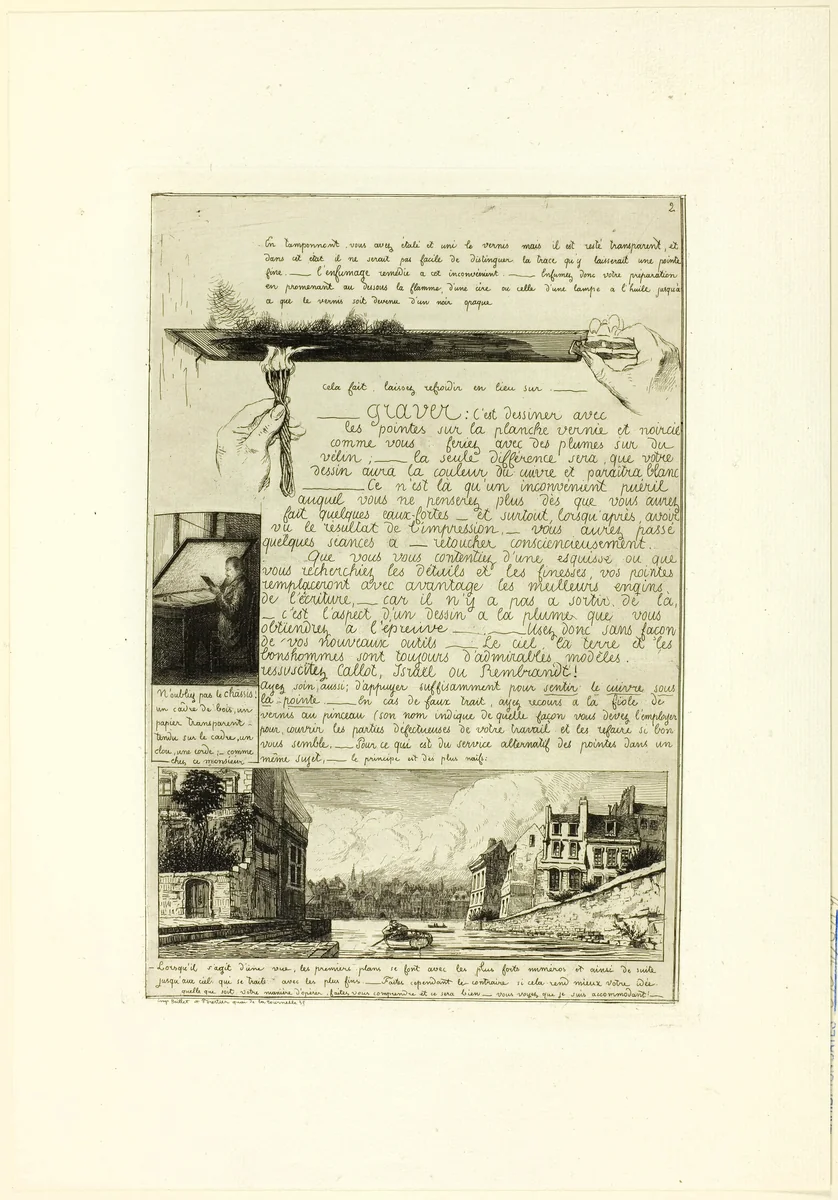 2
En tamponnant vous avez étalé et uni le vernis mais il est resté transparent, et
dans cet état il ne serait pas facile de distinguer la trace qu'y laisserait une pointe
fine. — l'enfumage remédie à cet inconvénient. — Enfumez donc votre préparation
en promenant au dessous la flamme, d'une cire ou celle d'une lampe a l'huile jusqu'à
a que le vernis soit devenu d'un noir opaque
Cela fait, laissez refroidir en lieu sur —
— GRAVER: C'est dessiner avec
les pointes sur la planche vernie et noircie
comme vous feriez avec des plumes sur du
vélin; — la seule différence sera, que votre
dessin aura la couleur du cuivre et paraitra blanc
— Ce n'est là qu'un inconvénient puéril
auquel vous ne penserez plus dès que vous aurez
fait quelques eaux-fortes — et surtout, lorsqu'après, avoir
vu le résultat de l'impression, — vous aurez passé
quelques séances à — retoucher consciencieusement.
Que vous vous contentiez d'une esquisse ou que
vous recherchiez les détails et les finesses, vos pointes
remplaceront avec avantage les meilleurs engins
de l'écriture, — car il n'y a pas a sortir de là,
— c'est l'aspect d'un dessin a la plume que vous
obtiendrez à l'épreuve — Usez donc sans façon
de vos nouveaux outils — Le ciel, la terre et les
bonshommes sont toujours d'admirables modèles.
ressuscitez Callot, Israël ou Rembrandt!
Ayez soin, aussi; d'appuyer suffisamment pour sentir le cuivre sous
la pointe. — En cas de faux trait, ayez recours à la fiole de
vernis au pinceau (son nom indique de quelle façon vous devez l'employer
pour, couvrir les parties défectueuses de votre travail et les refaire si bon
vous semble. — Pour ce qui est du service alternatif des pointes dans un
même sujet, — le principe est des plus naïfs:
N'oubliez pas le châssis:
un cadre de bois, un
papier transparent
tendu sur le cadre, un
clou, une corde, — comme
chez ce monsieur
— Lorsqu'il s'agit d'une vue, les premiers plans se font avec les plus forts numéros et ainsi de suite
jusqu'aux ciel que se traite avec les plus fins — Faites cependant le contraire si cela rend mieux votre idée
quelle que soit votre manière d'opérer, faites vous comprendre et ce sera bien — vous voyez que je suis accommodant! —
quai de la tournelle